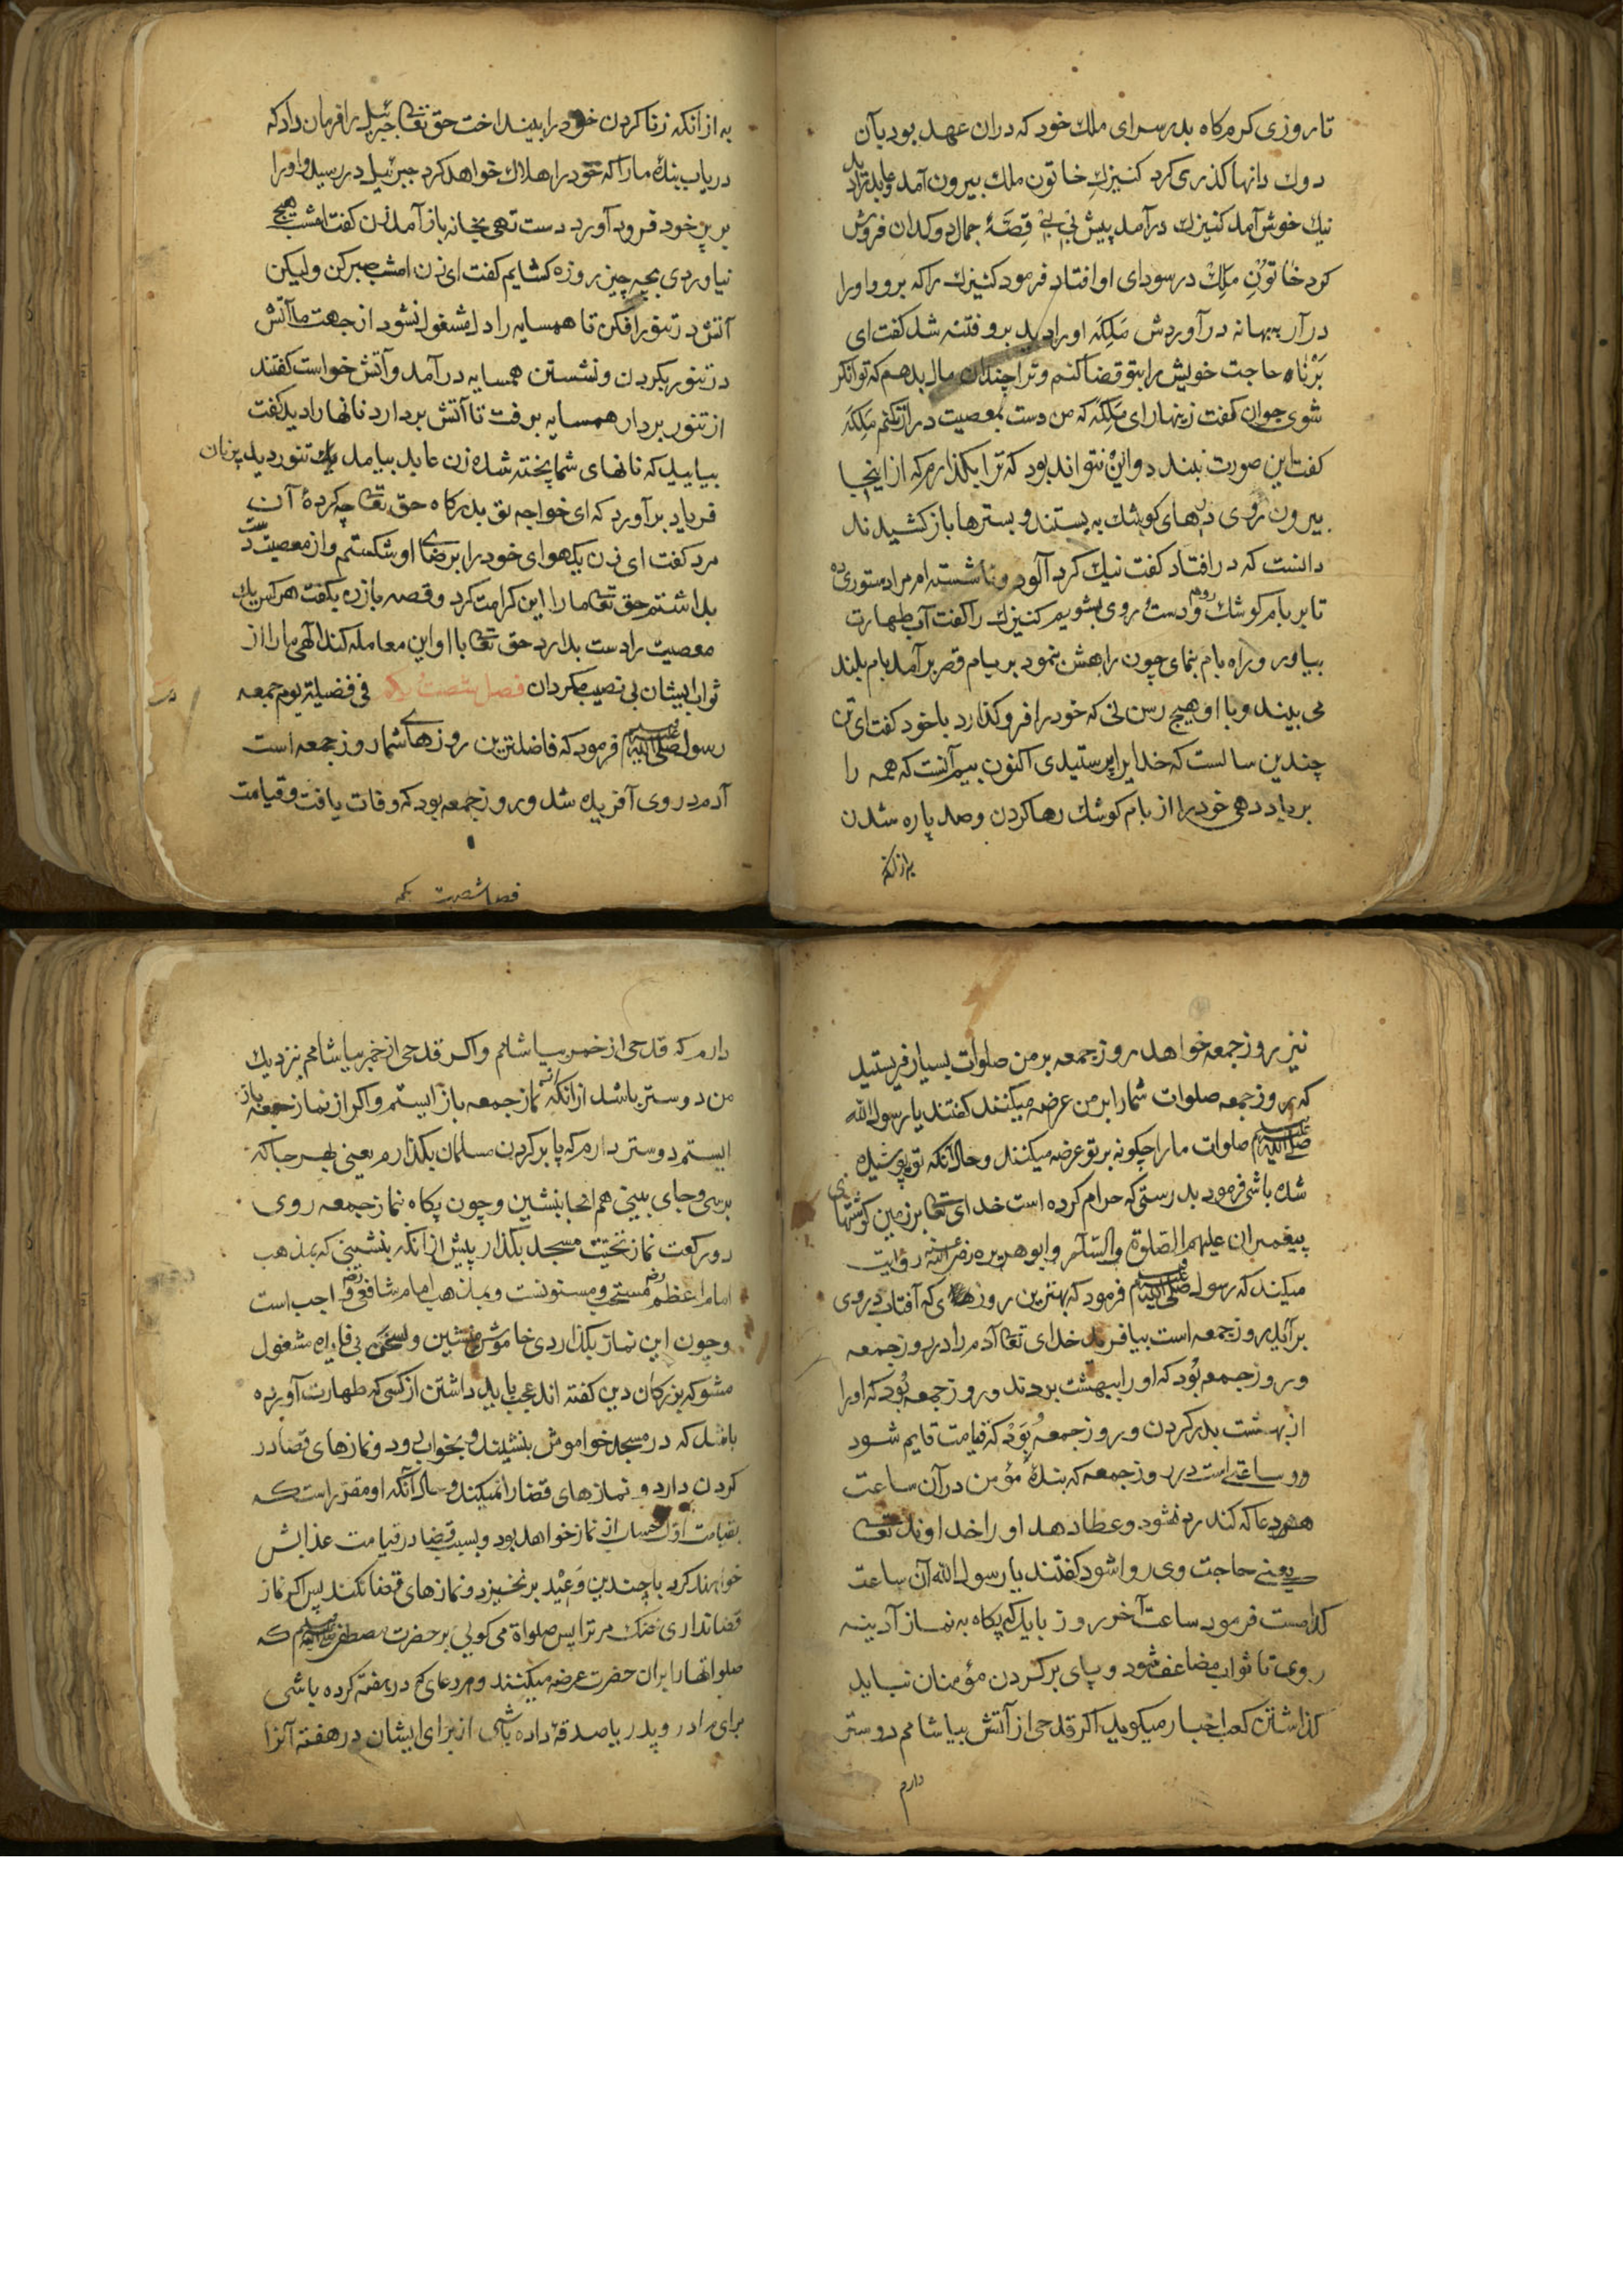 تا روزی کرم کاه بدر سرای ملک خود که دران عهد بود بآن
دوک دانها کذری کرد کنیزکِ خاتون ملک بیرون آمد و عابد را دید
نیک خوش آمد کنیزک درآمد پیش بی بی قِصّهٔ جمال دوکدان فروش
کرد خاتونِ مَلِک در سودای او افتاد فرمود کنیزک را که برو و او را
درآر ببهانه درآوردش مَلِکَه او را دید برو فتنه شد کفت ای
بَرْنا حاجت خویش را بتو قضا کنم و ترا چندان مال بدهم که توانکر
شوی جوان کفت زینهار ای مَلِکَه که من دست بمعصیت دراز نکنم مَلِکَه
کفت این صورت نبندد و این نتواند بود که ترا بکذارم که از اینجا
بیرون روی درهای کوشک به بستند و بسترها باز کشیدند
دانست که در افتاد کفت نیک کرد آلود و ناشسته ام مرا دستوری ده
تا بر بام کوشک روم و دست روی بشویم کنیزک را کفت آب طهارت
بیاور و راه بام بنمای چون راهش نمود بر بام قصر برآمد بام بلند
می بیند و با او هیچ رسن نی که خود را فرو کذارد با خود کفت ای تن
چندین سالست که خدایرا پرستیدی اکنون بیم آنست که همه را
برباد دهی خود را از بام کوشک رها کردن و صد پاره شدن
به از انکه
به از آنکه زنا کردن خود را بینداخت حق تعالی جبرئیل را فرمان داد که
دریاب بنده ما را که خود را هلاک خواهد کرد جبرئیل در رسید و او را
بر پر خود فرود آورد دست تهی بخانه باز آمد زن کفت امشب هیچ
نیاوردی بچه چیز روزه کشایم کفت ای زن امشب صبر کن ولیکن
آتش در تنور افکن تا همسایه را دل مشغول نشود از جهت ما آتش
در تنور بکردن و نشستن همسایه درآمد و آتش خواست کفتند
از تنور بردار همسایه برفت تا آتش بردارد نانها را دید کفت
بیایید که نانهای شما پخته شده زن عابد بیامد یک تنور دید پر نان
فریاد برآورد که ای خواجه تو بدرکاه حق تعالی چه کردهٔ آن
مرد کفت ای زن یک هوای خود را برضای او شکستم و از معصیت دست
بداشتم حق تعالی ما را این کرامت کرد و قصه باز ده بکفت هر کس یک
معصیت را دست بدارد حق تعالی با او این معامله کند الهی ما را از
ثواب ایشان بی نصیب مکردان فصل شصت یکم فی فضیلة یوم جمعه
رسول صلی الله علیه وسلم فرمود که فاضلترین روزهای شما روز جمعه است
آدم در وی آفریده شد و روز جمعه بود که وفات یافت و قیامت
فصل شصت یکم
نیز بروز جمعه خواهد روز جمعه بر من صلوات بسیار فرستید
که بروز جمعه صلوات شما را بر من عرضه میکنند کفتند یا رسول الله
صلی الله علیه وسلم صلوات ما را چکونه بر تو عرضه میکنند و حال آنکه تو پوشیده
شده باشی فرمود بدرستی که حرام کرده است خدای تعالی بر زمین کوشتهای
پیغمبران علیهم الصّلوة والسّلام و ابو هریره رضی الله عنه روایت
میکند که رسول صلی الله علیه وسلم فرمود که بهترین روزهای که آفتاب در وی
برآید روز جمعه است بیافرید خدای تعالی آدم را در روز جمعه
و روز جمعه بُوَد که او را ببهشت بردند و روز جمعه بُوَد که او را
از بهشت بدر کردن و روز جمعه بُوَدْ که قیامت قایم شود
و و ساعتی است در روز جمعه که بندهٔ مؤمن در آن ساعت
هر دعا که کند رد نشود و عطا دهد او را خداوند تعالی
یعنی حاجت وی روا شود کفتند یا رسول الله آن ساعت
کدامست فرمود ساعت آخر روز باید که پکاه به نماز آدینه
روی تا ثواب مضاعف شود و پای بر کردن مؤمنان نباید
کذاشتن کعب اخبار میکوید اکر قدحی از آتش بیاشامم دوستر
دارم
دارم که قدحی از خمر بیاشامم و اکر قدحی از خمر بیاشامم بنزدیک
من دوستر باشد از آنکه از نماز جمعه باز ایستم و اکر از نماز جمعه باز
ایستم دوستر دارم که پا بر کردن مسلمان بکذارم یعنی بهر جا که
برسی و جای ببینی هم انجا بنشین و چون پکاه نماز جمعه روی
دو رکعت نماز تحیّت مسجد بکذار پیش از آنکه بنشینی که بمذهب
امام اعظم رض مستحب و مسنونست و بمذهب امام شافعی رض واجب است
و چون این نماز بکذاردی خاموش منشین و بسخن بی فایده مشغول
مشو که بزرکان دین کفته اند عجب باید داشتن از کسی که طهارت آورده
باشد که در مسجد خواموش بنشیند و بخواب رود و نمازهای قضا در
کردن دارد و نمازهای قضا را نمیکند و حال آنکه او مقرّر است که
بقیامت اوّل حساب از نماز خواهد بود و بسبب قضا در قیامت عذابش
خواهند کرد با چندین وَعیْد برنخیزد و نمازهای قضا نکند پس اکر نماز
قضا نداری خنک مر ترا پس صلواة می کویی بر حضرت مصطفی صلی الله علیه وسلم که
صلواتها را بران حضرت عرضه میکنند و هر دعای که در هفته کرده باشی
برای مادر و پدر یا صدقهٔ داده باشی از برای ایشان در هفته آنرا